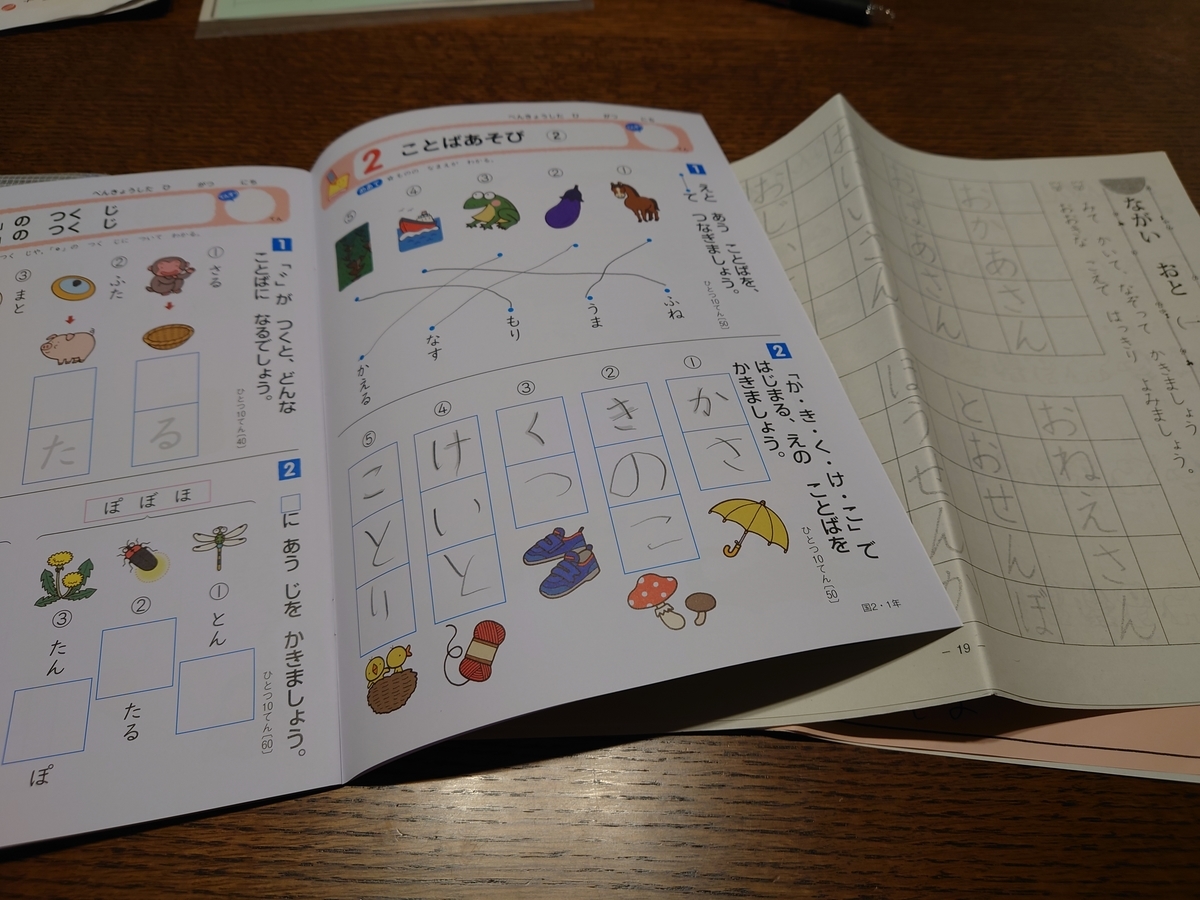 べんきょうした ひ がつ にち
2 ことばあそび ②
1 えと あう ことばを、
て つなぎましょう。
ひとつ10てん[50]
①
②
③
④
⑤
ふね
うま
もり
なす
かえる
2 「か・き・く・け・こ」で
はじまる、えの ことばを
かきましょう。
ひとつ10てん[50]
① かさ
② きのこ
③ くつ
④ けいと
⑤ ことり
国2・1年
べんきょうした ひ がつ にち
の つく じ
の つく じ
1 「゛」が つくと、どんな
ことばに なるでしょう。
ひとつ10てん[40]
① さる
る
② ふた
た
③ まと
2 □に あう じを かきましょう。
ひとつ10てん[60]
ぽ ぼ ほ
① とん
② たる
③ たん
ぽ
ながい おと
みて、かいて、なぞって かきましょう。
おおきな こえで はっきり よみましょう。
おかあさん
おばあさん
おじいさん
おねえさん
とおせんぼ
ふうせん
― 19 ―